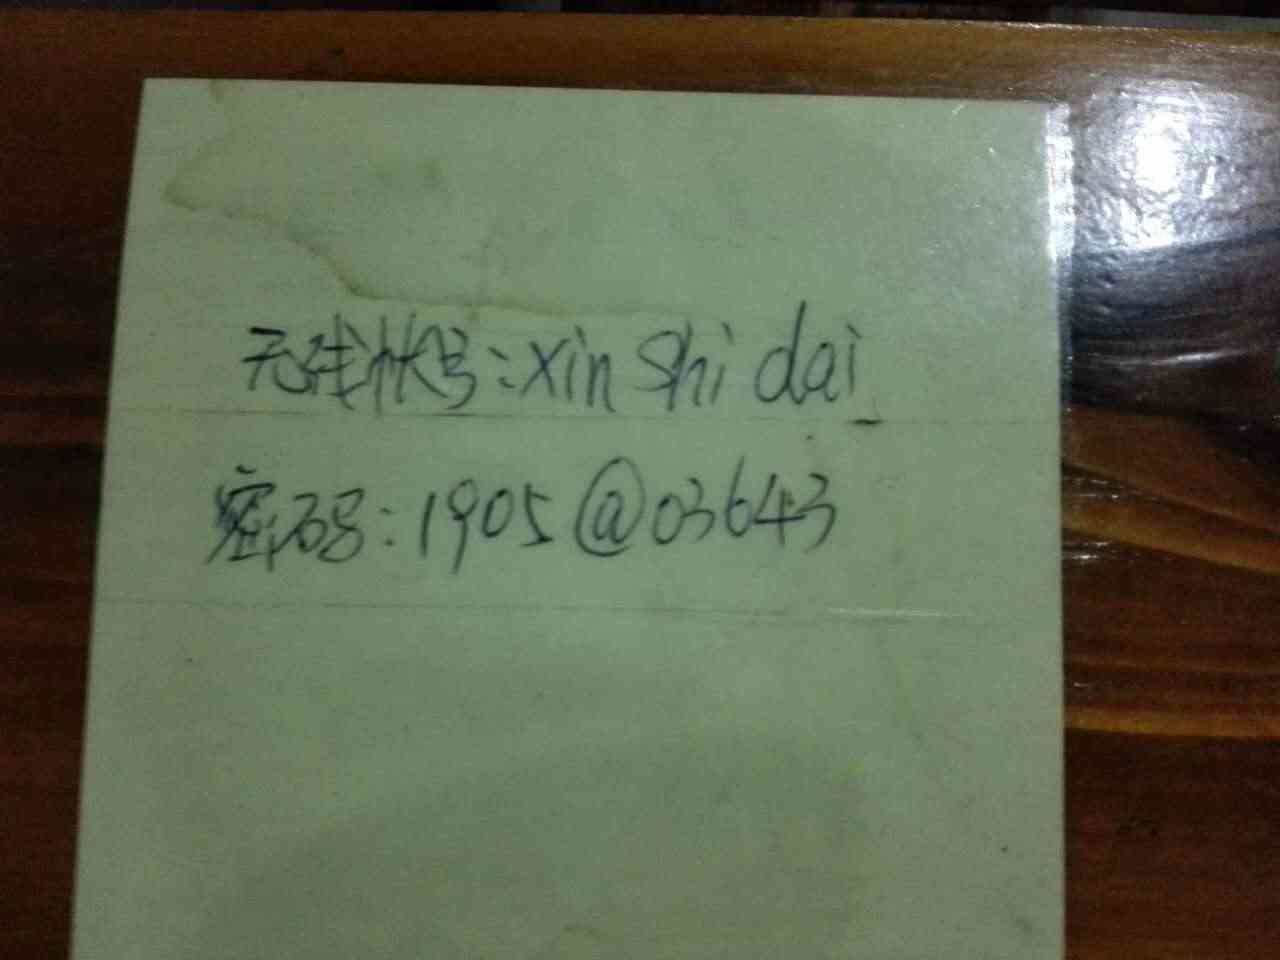 无线帐号:xin shi dai
密码:1905@03643